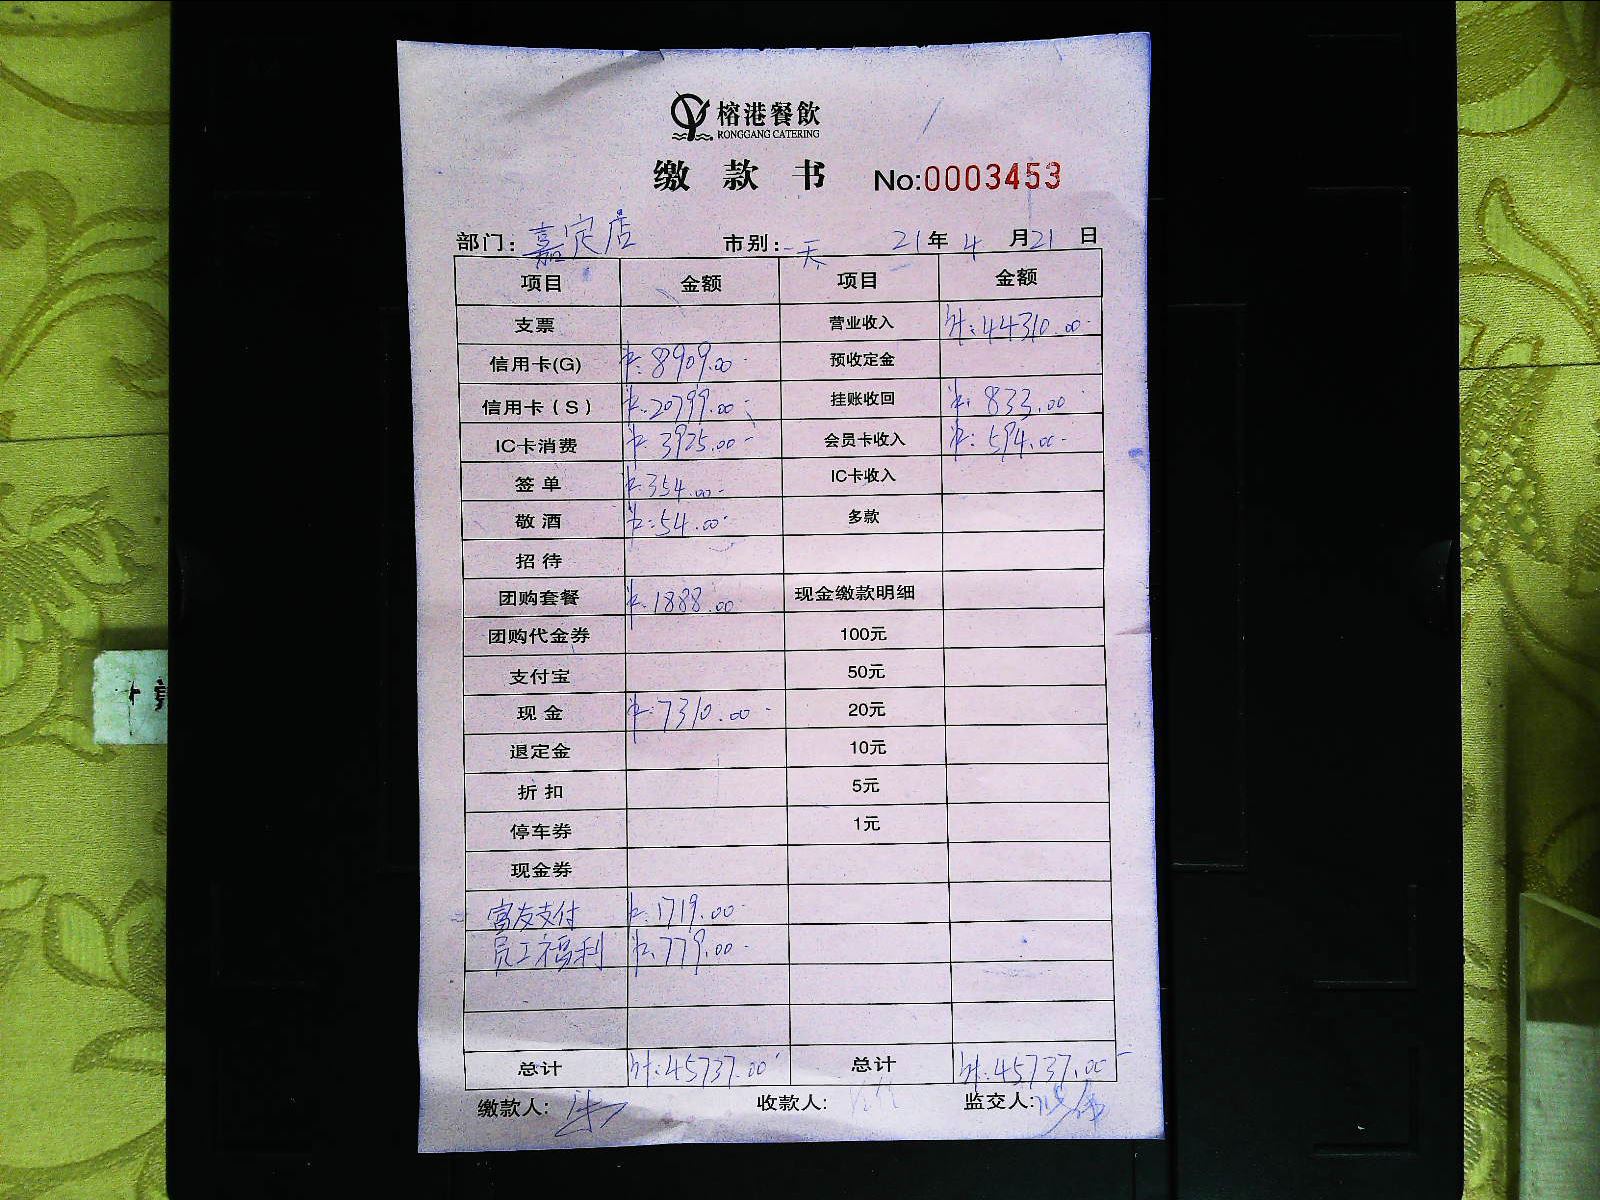 榕港餐飲
RONGGANG CATERING
缴 款 书 No:0003453
部门：嘉定店 市别：一天 21年4月21日
项目 金额 项目 金额
支票 营业收入 计:44310.00
信用卡(G) ￥:8909.00 预收定金
信用卡（S） ￥:20799.00 挂账收回 ￥:833.00
IC卡消费 ￥:3925.00 会员卡收入 ￥:594.00
签 单 ￥:354.00 IC卡收入
敬 酒 ￥:54.00 多款
招 待
团购套餐 ￥:1888.00 现金缴款明细
团购代金券 100元
支付宝 50元
现 金 ￥:7310.00 20元
退定金 10元
折 扣 5元
停车券 1元
现金券
富友支付 ￥:1719.00
员工福利 ￥:779.00
总计 计:45737.00 总计 计:45737.00
缴款人： 收款人： 监交人：